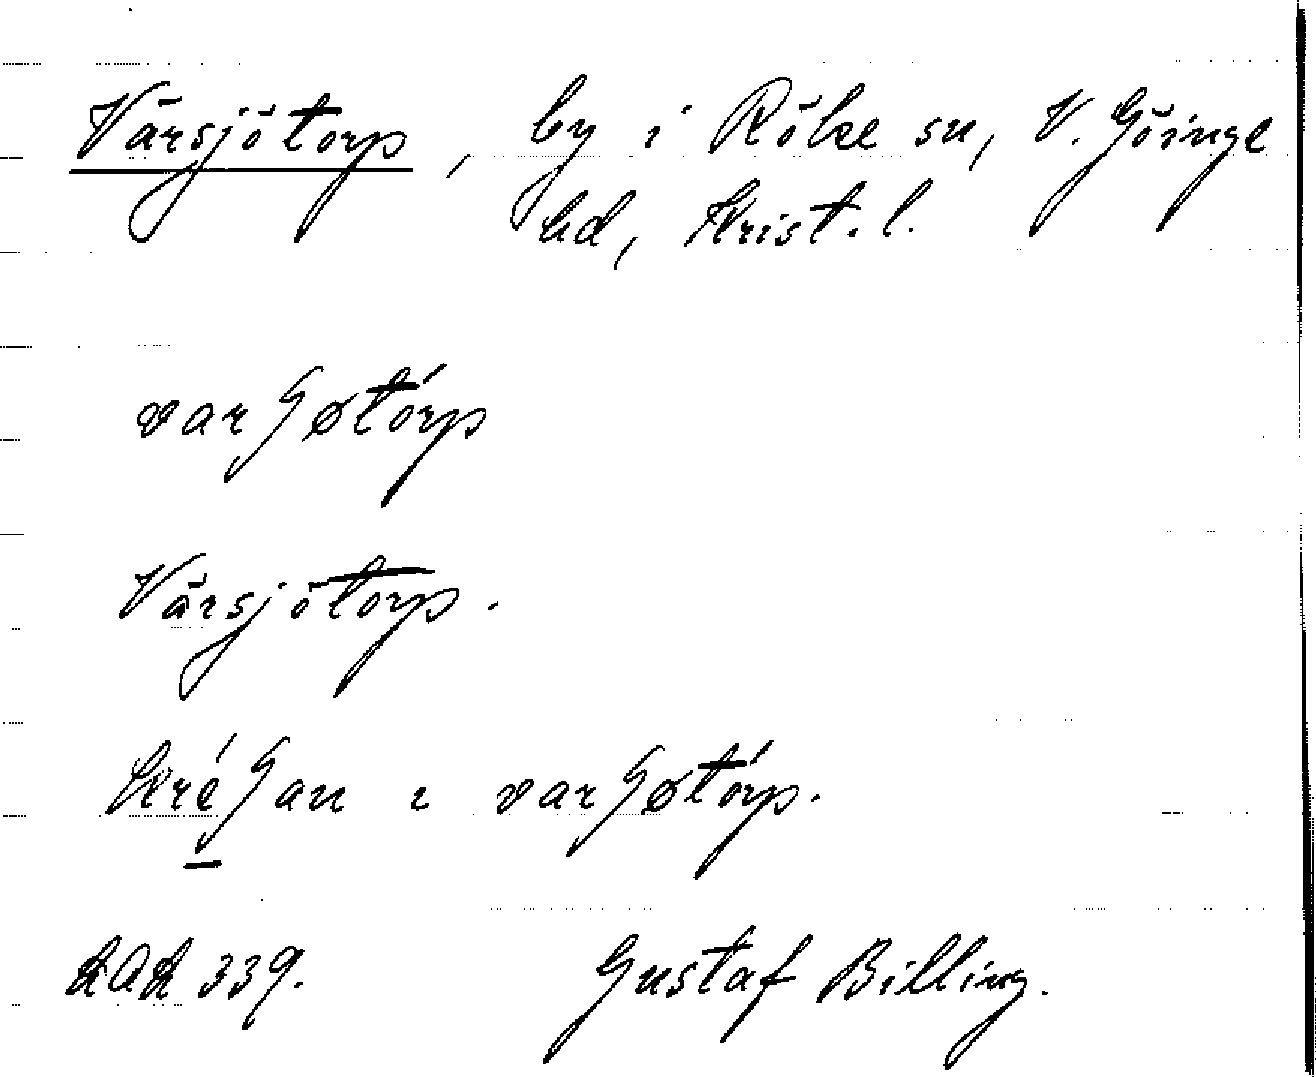 Vårsjötorp, by i Röke sn, V. Göinge
hd, Krist. l.
varʃøtórp
Vårsjötorp.
kréʃan ı varʃøtórp.
LAL 339. Gustaf Billing.